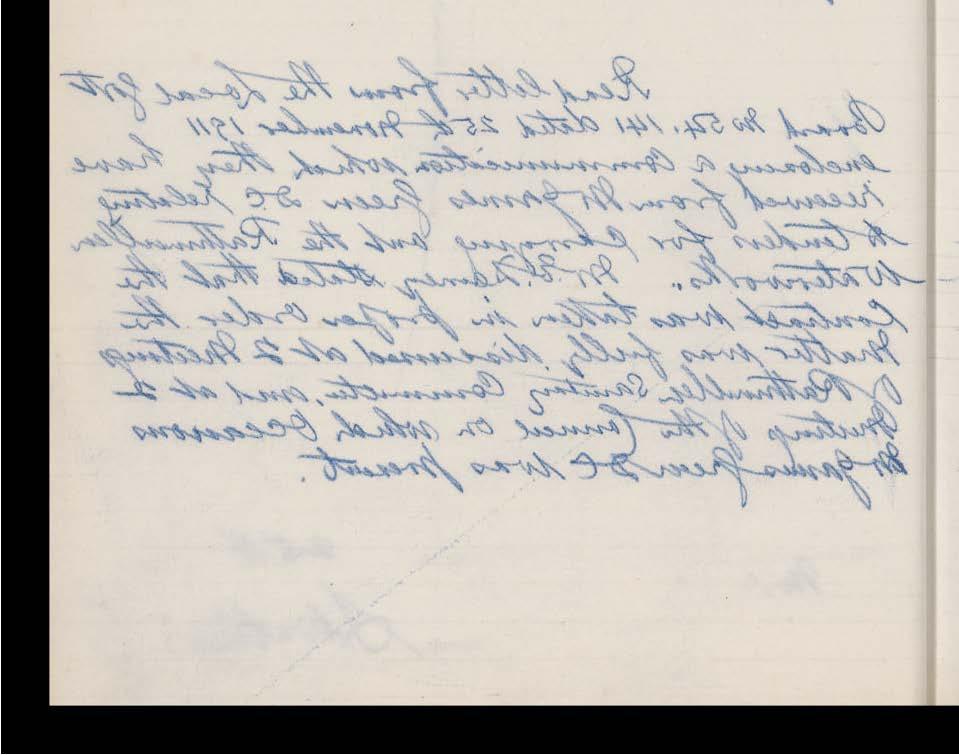 Read letter from the Local Govt
Board No 54,141 dated 25th November 1911
enclosing a Communication which they have
received from Mr James Green DC relating
to tenders for Cleaning out the Rathmullen
Waterworks. Mr stated that the
Contract was taken in proper Order the
Matter was fully discussed at 2 Meetings
of Rathmullen Sanitary Committee, and at 2
Meetings of the Council on which Occasions
Mr James Green DC was present.